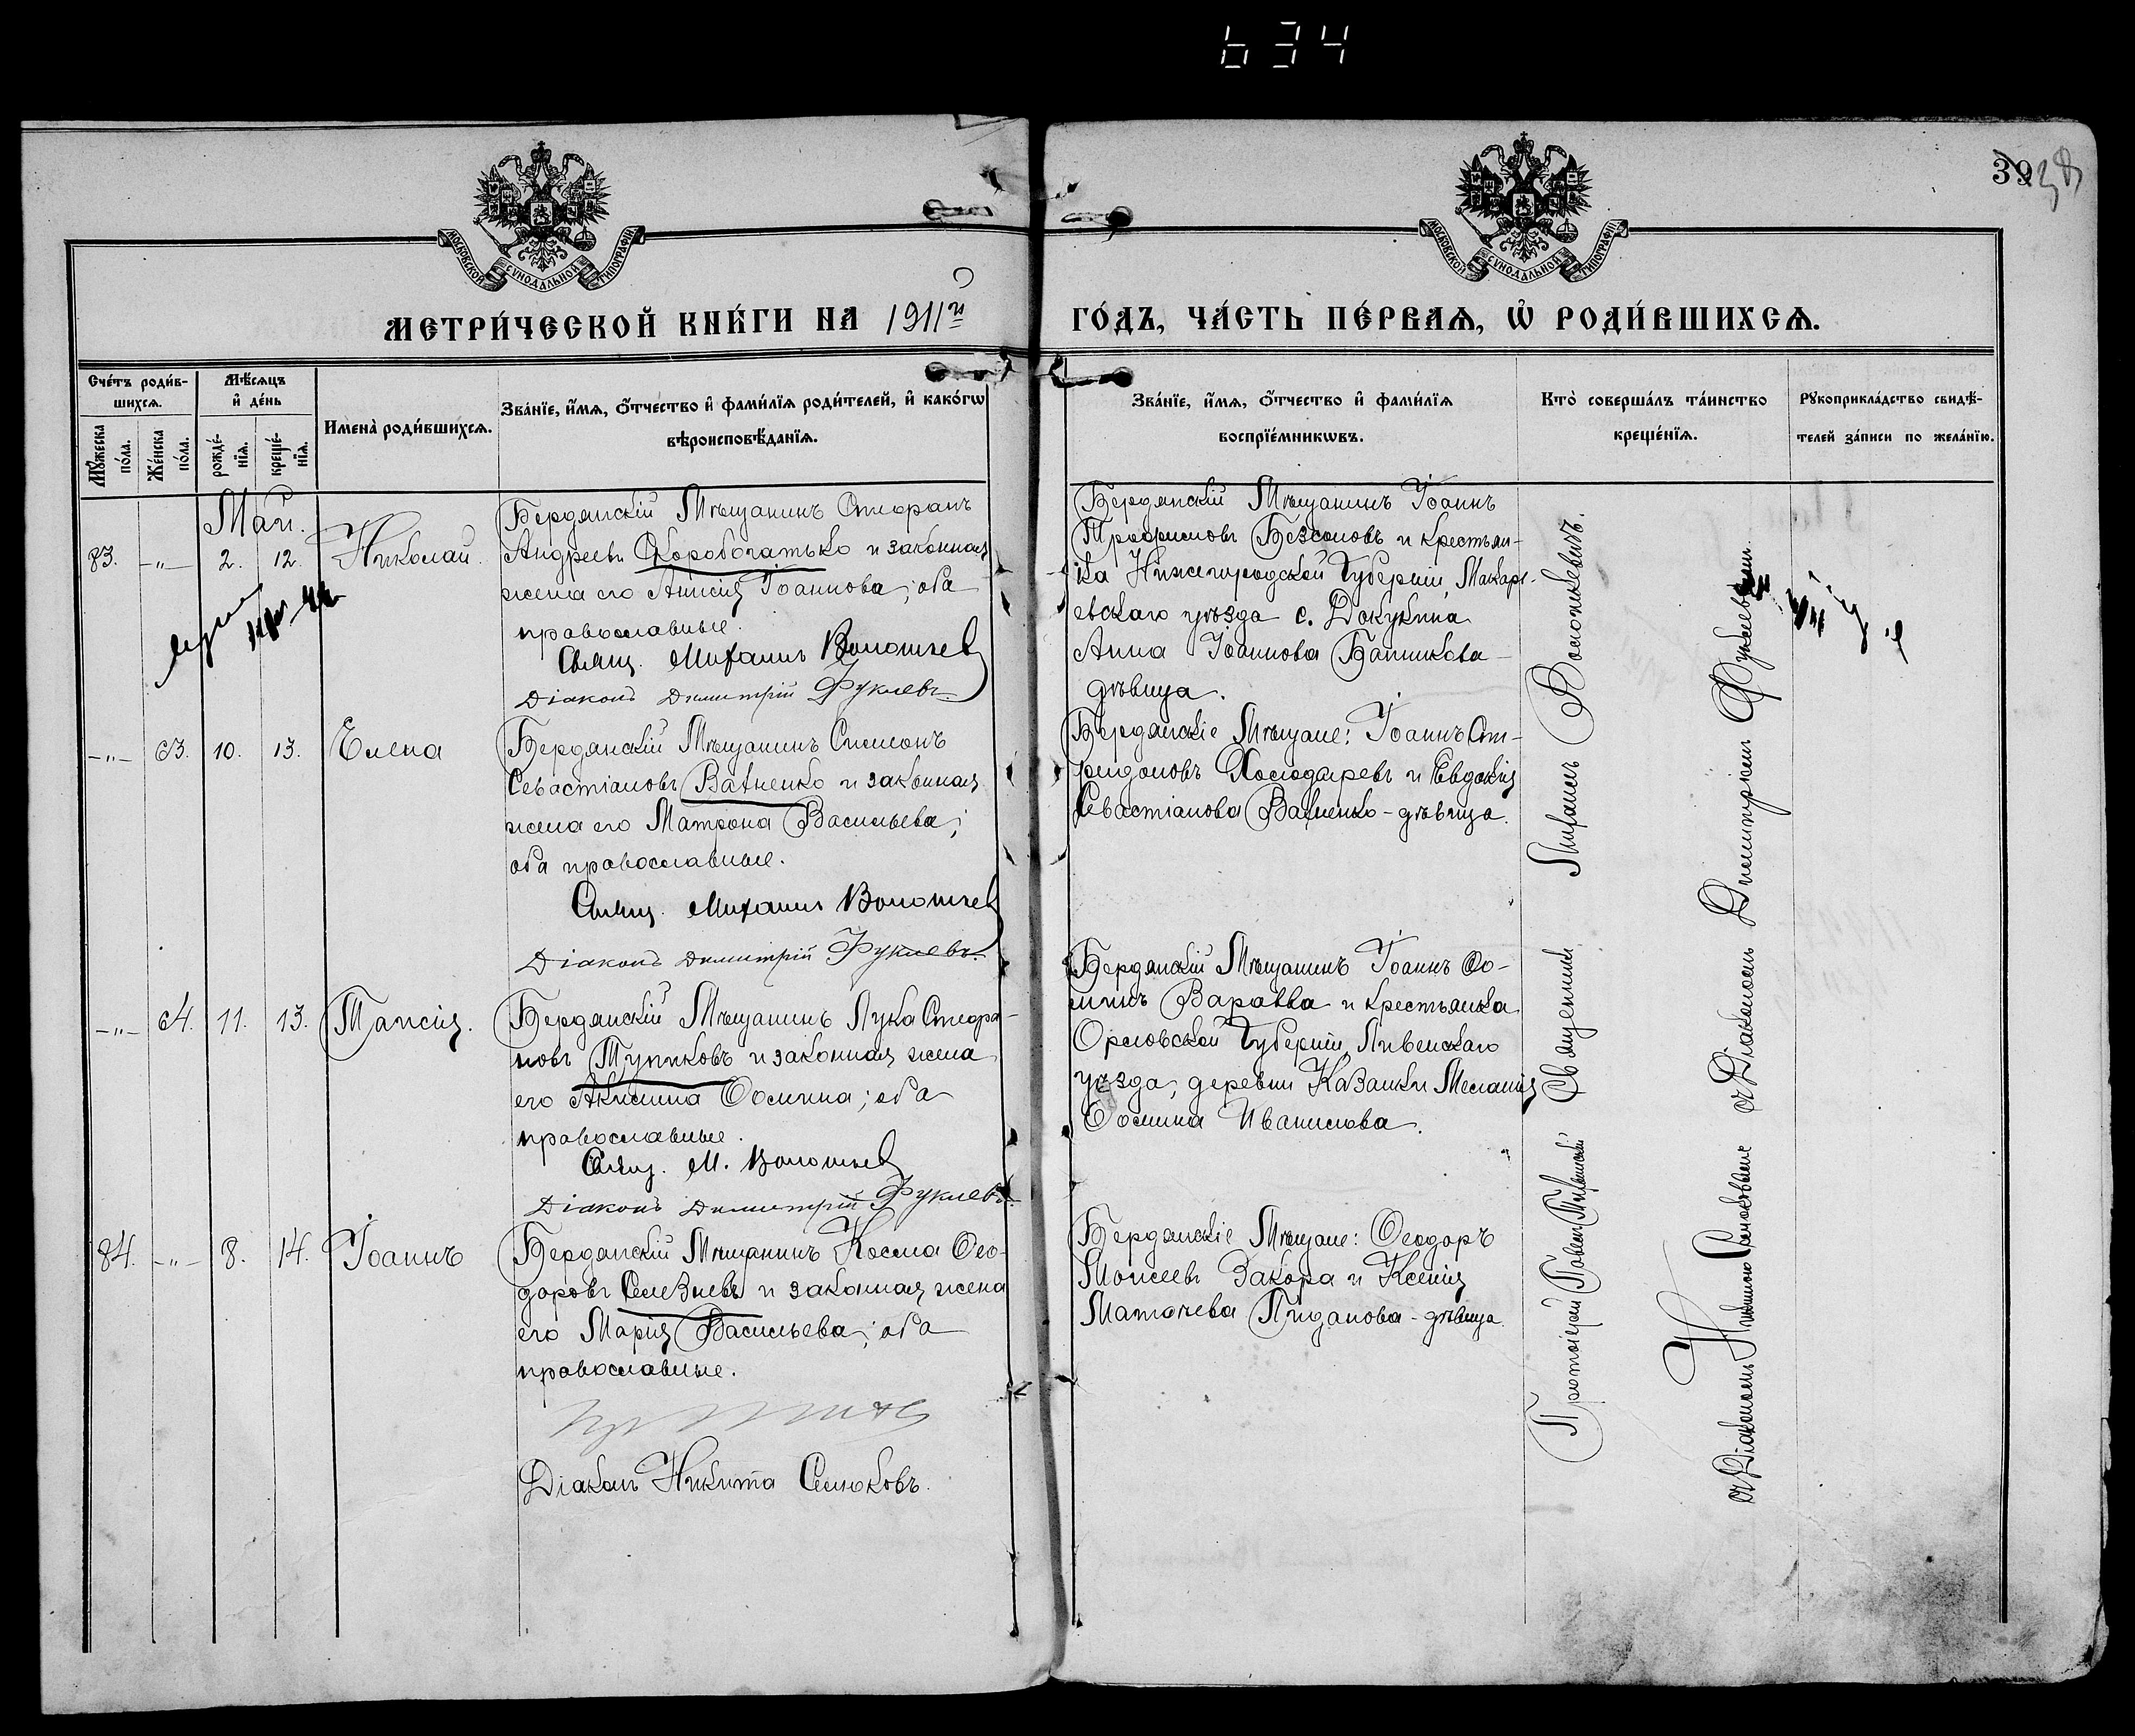 634
39
38
МОСКОВСКОЙ СѴНОДАЛЬНОЙ ТИПОГРАФІИ
МОСКОВСКОЙ СѴНОДАЛЬНОЙ ТИПОГРАФІИ
МЕТРИ́ЧЕСКОЙ КНИ́ГИ НА 1911й
ГО́ДЪ, ЧА́СТЬ ПЕ́РВАѦ, Ѡ҆ РОДИ́ВШИХСѦ.
Сче́тъ роди́в-
шихсѧ.
Мꙋ́жеска по́ла.
Же́нска по́ла.
Мѣ́сѧцъ
и҆ де́нь
рожде́-
нїѧ.
креще́-
нїѧ.
И҆мена̀ роди́вшихсѧ.
Зва́нїе, и҆́мѧ, ѻ҆́тчество и҆ фами́лїѧ роди́телей, и҆ како́гѡ
вѣроисповѣ́данїѧ.
Зва́нїе, и҆́мѧ, ѻ҆́тчество и҆ фами́лїѧ
воспрїе́мникѡвъ.
Кто̀ соверша́лъ та́инство
креще́нїѧ.
Рꙋкоприкла́дство свидѣ́-
телей за́писи по жела́нїю.
Май.
83. -„- 2. 12. Николай.
Бердянскій Мѣщанинъ Стефанъ
Андреевъ Скоробогатько и законная
жена его Анисія Іоаннова; оба
православные.
Свящ. Михаилъ
Діаконъ Димитрій Фуклевъ.
Бердянскій Мѣщанинъ Іоаннъ
Трофимовъ Безсоновъ и крестьян-
ка Нижегородской Губерніи, Макарь-
евскаго уѣзда с. Докукина
Анна Іоаннова Банникова
дѣвица.
-„- 63. 10. 13. Елена
Бердянскій Мѣщанинъ Симеонъ
Севастіановъ Ватченко и законная
жена его Матрона Васильева;
оба православные.
Свящ. Михаилъ
Діаконъ Димитрій Фуклевъ.
Бердянскіе Мѣщане: Іоаннъ Спи-
ридоновъ Холодаревъ и Евдокія
Севастіанова Ватченко - дѣвица.
-„- 64. 11. 13. Таисія.
Бердянскій Мѣщанинъ Лука Стефа-
новъ Тупиковъ и законная жена
его Акилина Ѳомина; оба
православные.
Свящ. М.
Діаконъ Димитрій Фуклевъ.
Бердянскій Мѣщанинъ Іоаннъ Ѳо-
минъ Варавва и крестьянка
Орловской Губерніи, Ливенскаго
уѣзда, деревни Казанки Меланія
Ѳомина Иванилова.
84. -„- 8. 14. Іоаннъ
Бердянскій Мѣщанинъ Косма Ѳео-
доровъ Селезневъ и законная жена
его Марія Васильева; оба
православные.
Діаконъ Никита Семковъ.
Бердянскіе Мѣщане: Ѳеодоръ
Моисеевъ Закора и Ксенія
Матвіева дѣвица
Протоіерей Павелъ
Священникъ Михаилъ
съ Діакономъ Димитріемъ Фуклевымъ.
съ Діакономъ Никитою